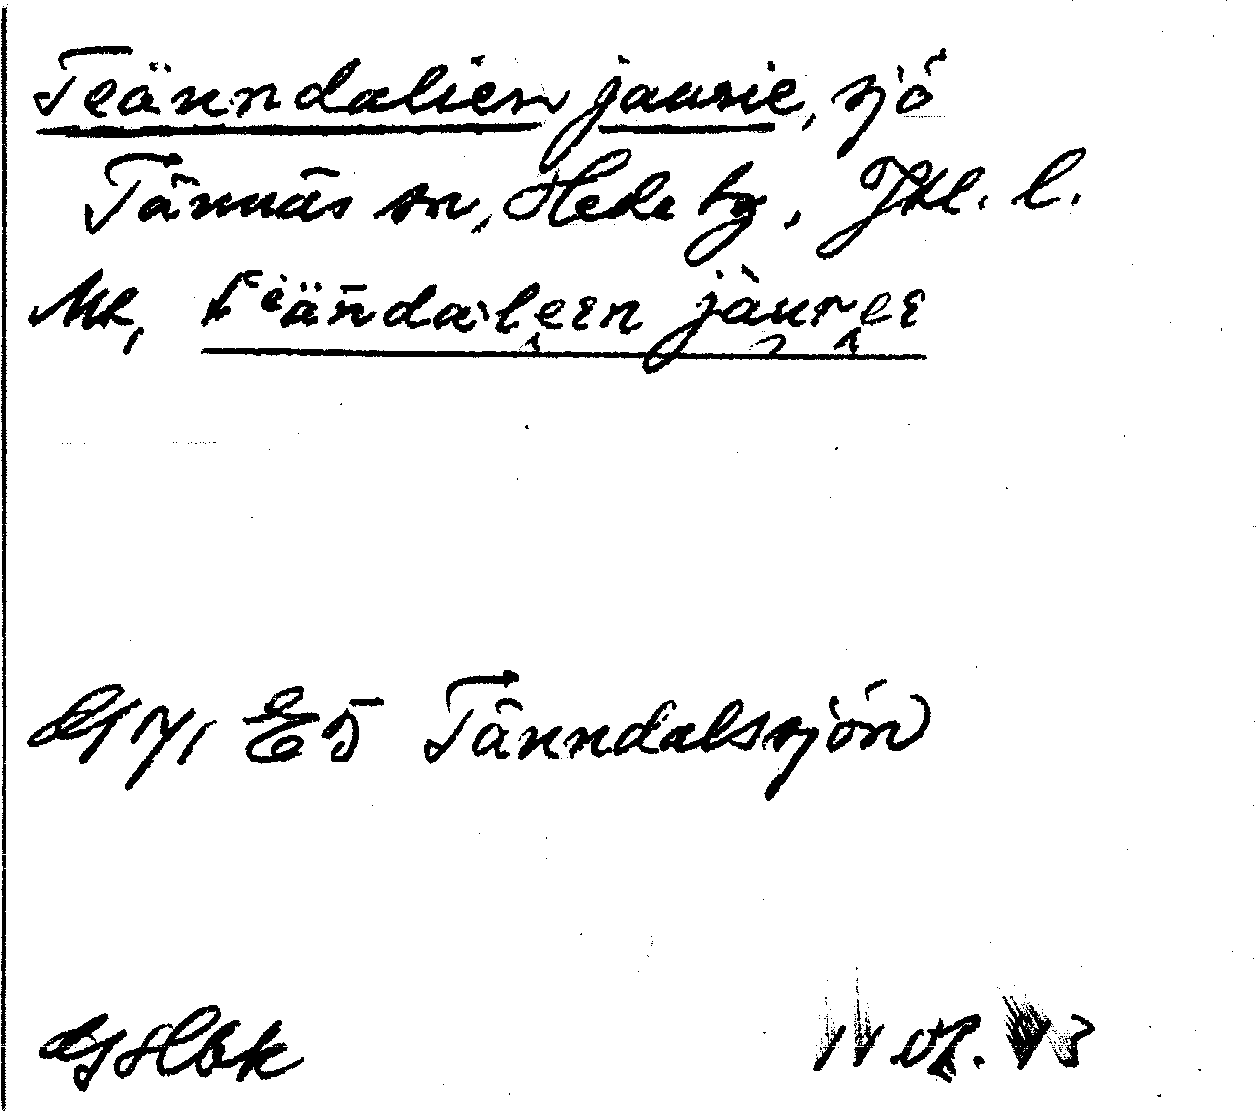 Teänndalien jaurie, sjö
Tännäs sn, Hede tg, Jtl. l.
Mk, tᵉän̄da·lεεn jàurεε
E5 Tänndalssjön
GHbk